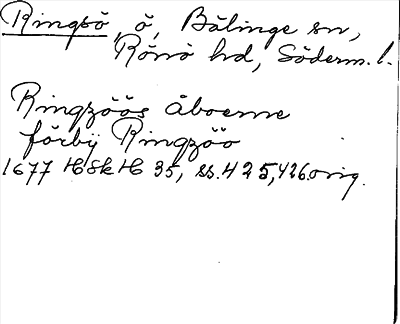 Ringsö, ö, Bälinge sn,
Rönö hd, Söderm. l.
Ringzöös åboerne
förbij Ringzöö
1677 HSkH 35, ss. 425, 426 orig.